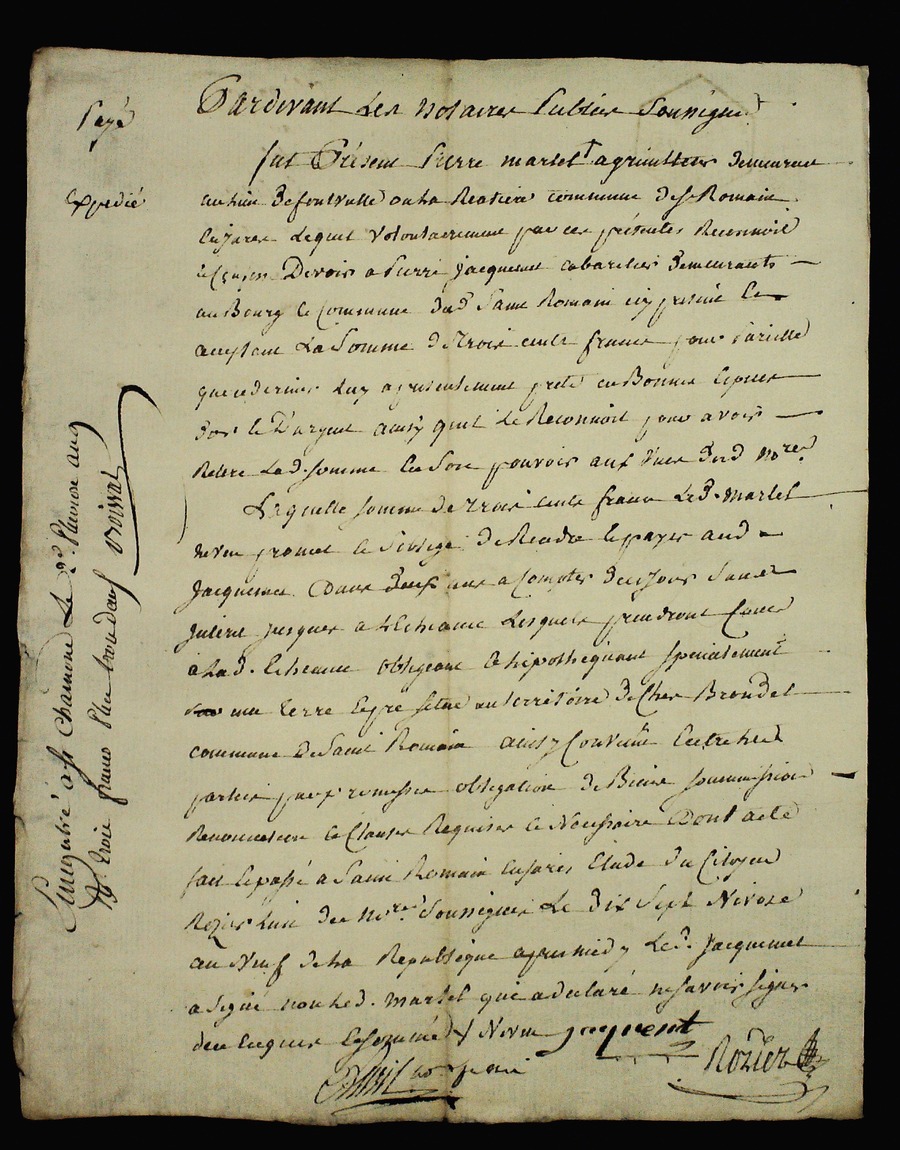 Payé
Expedié
Pardevant Les notaires Publics Soussignés
fut Présent Pierre martel agriculteur demeurant
au lieu de fontvalle ou la Reatiere commune de St Romain
En jarez Lequel Volontairement par ces présentes Reconnoit
et Confesse Devoir a Pierre jacquemet cabaretier demeurants
au Bourg et Commune dud. Saint Romain icy present et
acceptant La Somme de trois cents francs pour pareille
que ce dernier Luy a presentement preté en Bonnes Espece
d'or et D'argent ainsy quil Le Reconnoit pour avoir
Retiré Lad. somme En Son pouvoir aux vues desd. nores
Laquelle somme de trois cents francs Led. martel
promet et S'oblige de Rendre et payer aud.
Jacquemet Dans deux ans a Compter de ce jour Sans
Interet jusques a L'Echeance Lesquels prendront Cours
a Lad. Echeance obligeant et hipothequant specialement
une terre et pré situé au territoire de Chez Brondel
commune De Saint Romain ainsy Convenu Entre Les
parties par promesse obligation de Biens soummission
Renonciation et Clauses Requises et Necessaires Dont acte
fait et passé a Saint Romain En jarez Etude du Citoyen
Rozier L'un des nores Soussignés Le dix Sept Nivose
an Neuf de La Republique apres midy Led. Jacquemet
a Signé non Led. martel qui a declaré ne savoir signer
de ce Enquis Et sommé
jaquemt
Rozier
Enregistré a St Chamond Le Pluviose an 9
trois francs